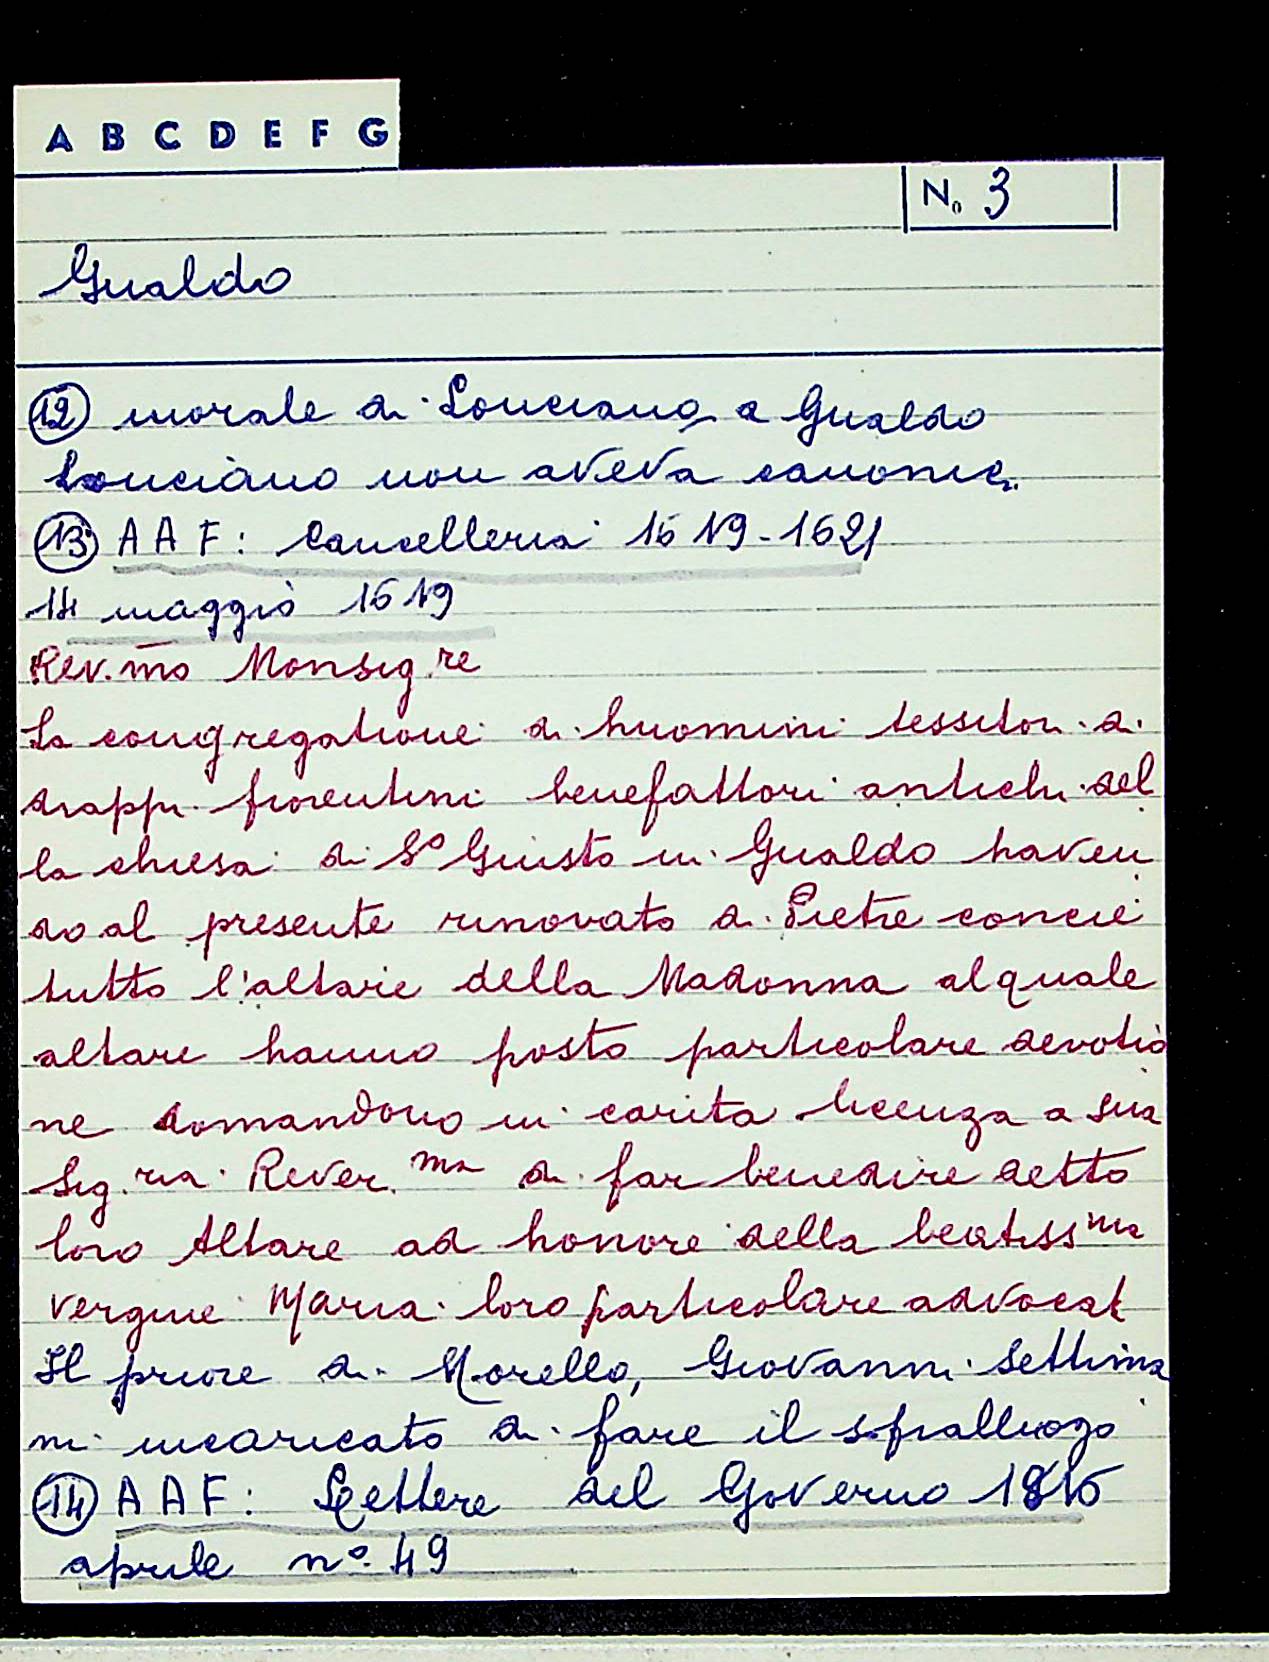 A B C D E F G
No 3
Gualdo
(12) morale di Lonciano a Gualdo
Lonciano non aveva canonic.
(13) A A F: Cancelleria 1619-1621
14 maggio 1619
Rev.mo Monsig.re
La congregatione di huomini tessitori di
drappi fiorentini benefattori antichi del
la chiesa di S° Giusto in Gualdo haven
do al presente rinovato di Pietre concie
tutto l'altare della Madonna al quale
altare hanno posto particolare devotio
ne domandono in carita licenza a sua
Sig.ria Rever.ma di far benedire detto
loro Altare ad honore della beatissma
vergine Maria loro particolare advocat
Il priore di Morello, Giovanni Settima
ni incaricato di fare il sopralluogo
(14) A A F: Lettere del Governo 1816
aprile n° 49